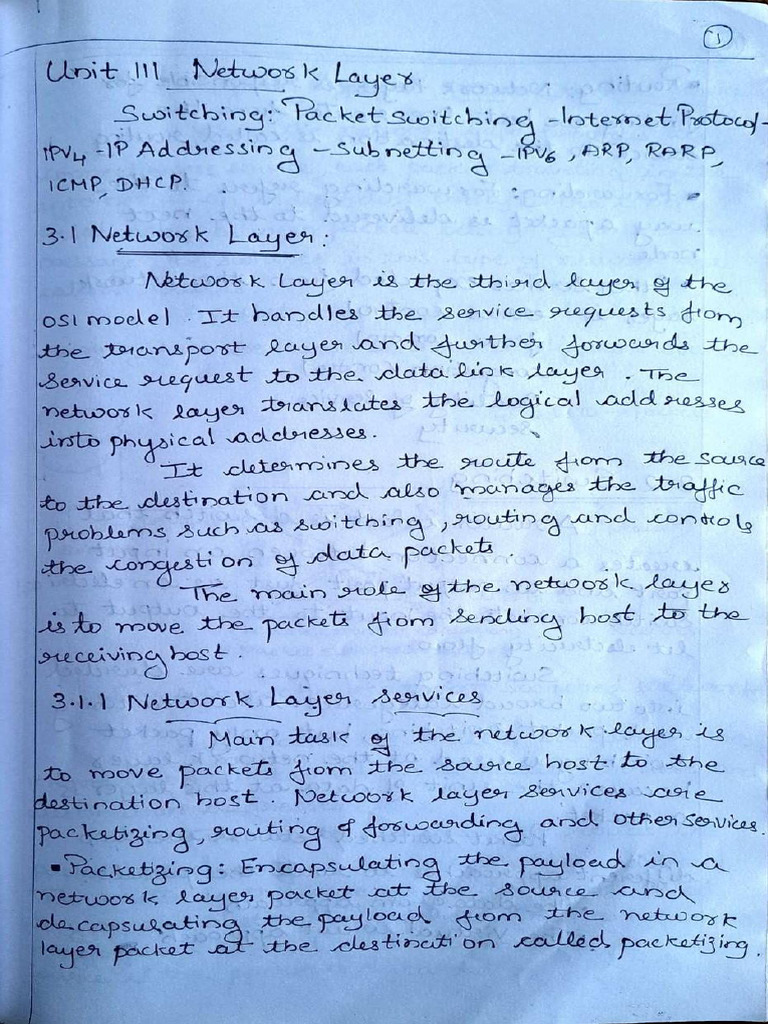 1
Unit III Network Layer
Switching: Packet switching - Internet Protocol -
IPV4 - IP Addressing - Subnetting - IPV6, ARP, RARP,
ICMP, DHCP.
3.1 Network Layer:
Network Layer is the third layer of the
OSI model. It handles the service requests from
the transport layer and further forwards the
service request to the data link layer. The
network layer translates the logical addresses
into physical addresses.
It determines the route from the source
to the destination and also manages the traffic
problems such as switching, routing and controls
the congestion of data packets.
The main role of the network layer
is to move the packets from sending host to the
receiving host.
3.1.1 Network Layer services
Main task of the network layer is
to move packets from the source host to the
destination host. Network layer services are
packetizing, routing & forwarding and other services.
• Packetizing: Encapsulating the payload in a
network layer packet at the source and
decapsulating the payload from the network
layer packet at the destination called packetizing.